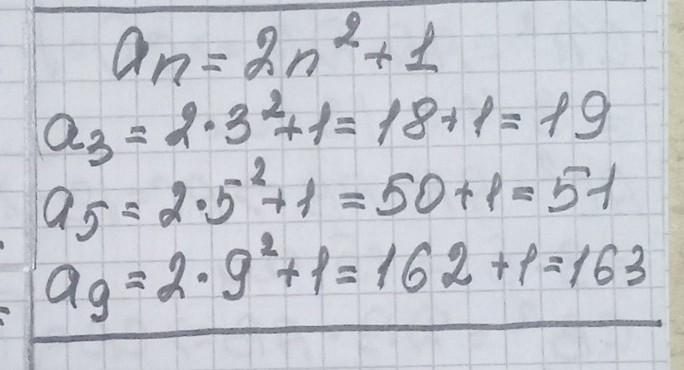 aₙ = 2n² + 1
a₃ = 2·3² + 1 = 18 + 1 = 19
a₅ = 2·5² + 1 = 50 + 1 = 51
a₉ = 2·9² + 1 = 162 + 1 = 163